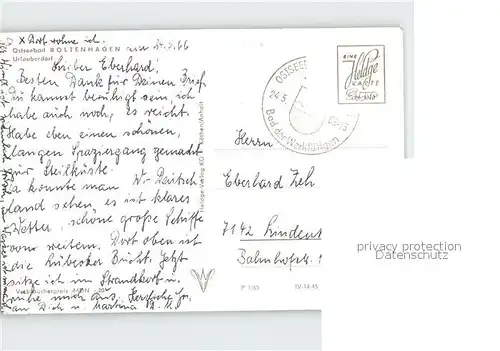 x Dort wohne ich.
Ostseebad BOLTENHAGEN am 24.5.66
Urlauberdorf
Lieber Eberhard!
Besten Dank für Deinen Brief,
Du kannst beruhigt sein, ich
habe auch noch, es reicht.
Habe eben einen schönen,
langen Spaziergang gemacht
zur Steilküste.
Da konnte man W.-Deutsch
land sehen, es ist klares
Wetter, schöne große Schiffe
von weitem. Dort oben ist
die Lübecker Bucht. Jetzt
sitze ich im Strandkorb u.
ruhe mich aus. Herzliche
an Dich u. Martina
Verbraucherpreis MDN
EINE
Heldge
KARTE
OSTSEE
24.5.
Bad der Werktätigen
Herrn
Eberhard Zeh
7142 Lindent
Bahnhofstr. 1
Heldge-Verlag KG Köthen/Anhalt
P 1/65 IV-14-45
privacy protection
Datenschutz